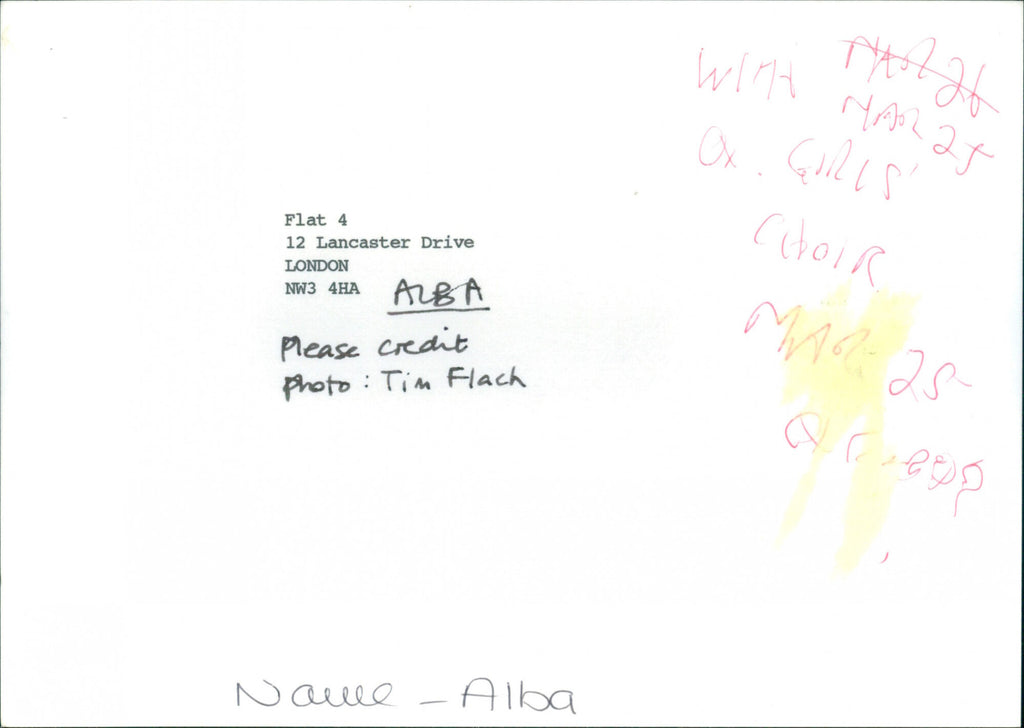 WITH MAR 26
MAR 25
OX. GIRLS'
CHOIR
Flat 4
12 Lancaster Drive
LONDON
NW3 4HA
ALBA
Please credit
photo : Tim Flach
MAR 25
OX
Name - Alba